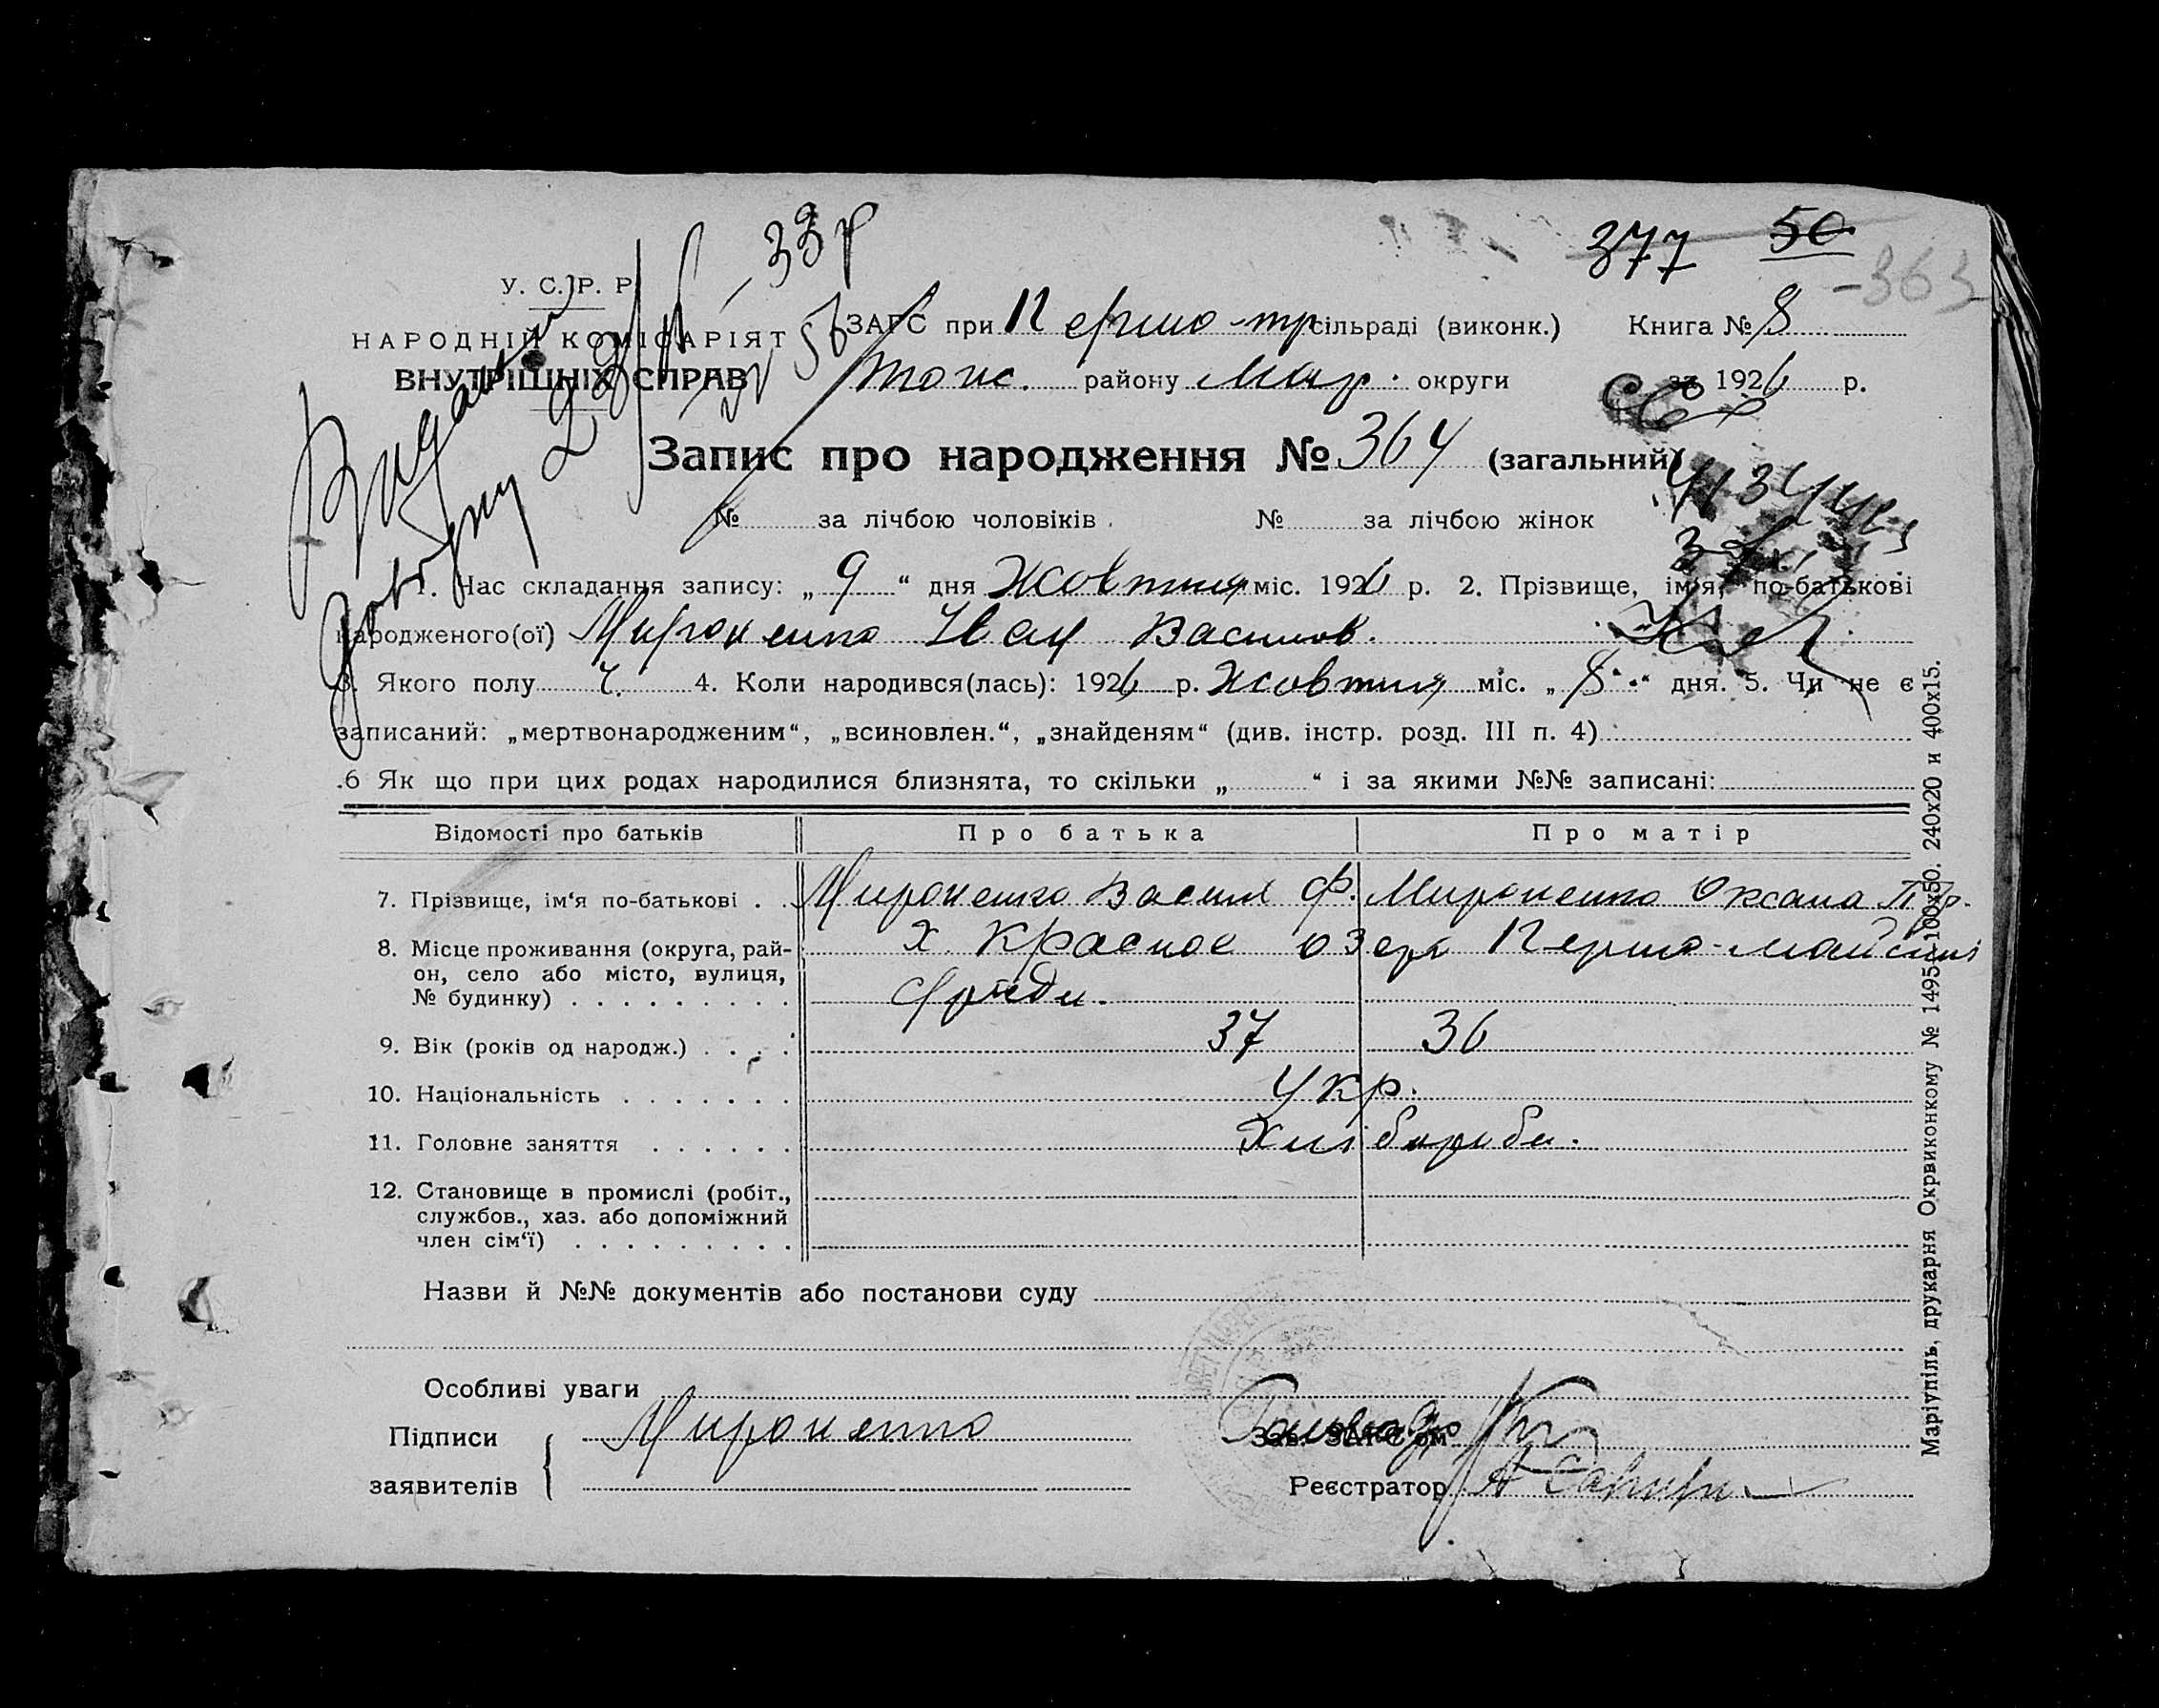 377 50
-363
33 р
У. С. Р. Р.
НАРОДНІЙ КОМІСАРІЯТ
ВНУТРІШНІХ СПРАВ
ЗАГС при Першо-тр сільраді (виконк.) Книга № 8
району Мар. округи за 1926 р.
Запис про народження № 364 (загальний)
№ за лічбою чоловіків. № за лічбою жінок
1. Час складання запису: „ 9 “ дня Жовтня міс. 1926 р. 2. Прізвище, ім'я, по-батькові
народженого(ої) Мироненко Іван Васильов.
3. Якого полу ч. 4. Коли народився(лась): 1926 р. Жовтня міс. „ 8 “ дня. 5. Чи не є
записаний: „мертвонародженим“, „всиновлен.“, „знайденям“ (див. інстр. розд. III п. 4)
.6 Як що при цих родах народилися близнята, то скільки „ “ і за якими №№ записані:
Відомості про батьків Про батька Про матір
7. Прізвище, ім‘я по-батькові . . Мироненко Василь Ф. Мироненко Оксана
8. Місце проживання (округа, рай-
он, село або місто, вулиця,
№ будинку) . . . . . . . . .
х. Красное озеро Першо-майської
9. Вік (років од народж.) . . . . 37 36
10. Національність . . . . . . . Укр.
11. Головне заняття . . . . . . Хлібороби.
12. Становище в промислі (робіт.,
службов., хаз. або допоміжний
член сім‘ї) . . . . . . . . .
Назви й №№ документів або постанови суду
Особливі уваги
Підписи Мироненко Зав. ЗАГС‘ом
заявителів Реєстратор
Маріупіль, друкарня Окрвиконкому № 1495—100х50. 240х20 и 400х15.